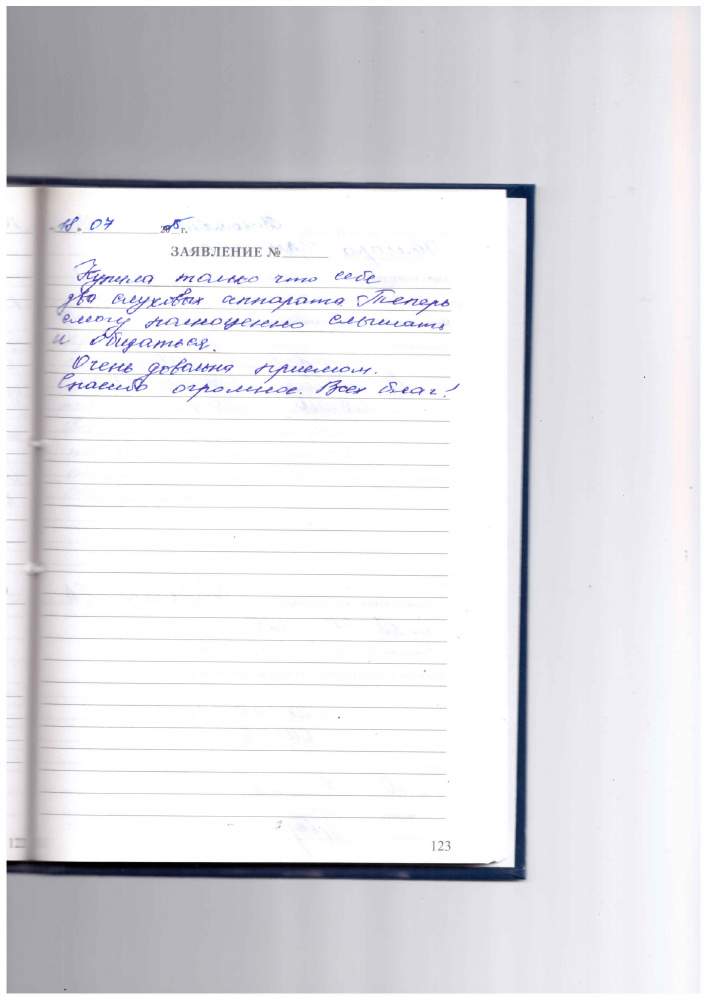 18.07 2015 г.
ЗАЯВЛЕНИЕ №
Купила только что себе
два слуховых аппарата. Теперь
смогу полноценно слышать
и общаться.
Очень довольна приемом.
Спасибо огромное. Всех благ!
123